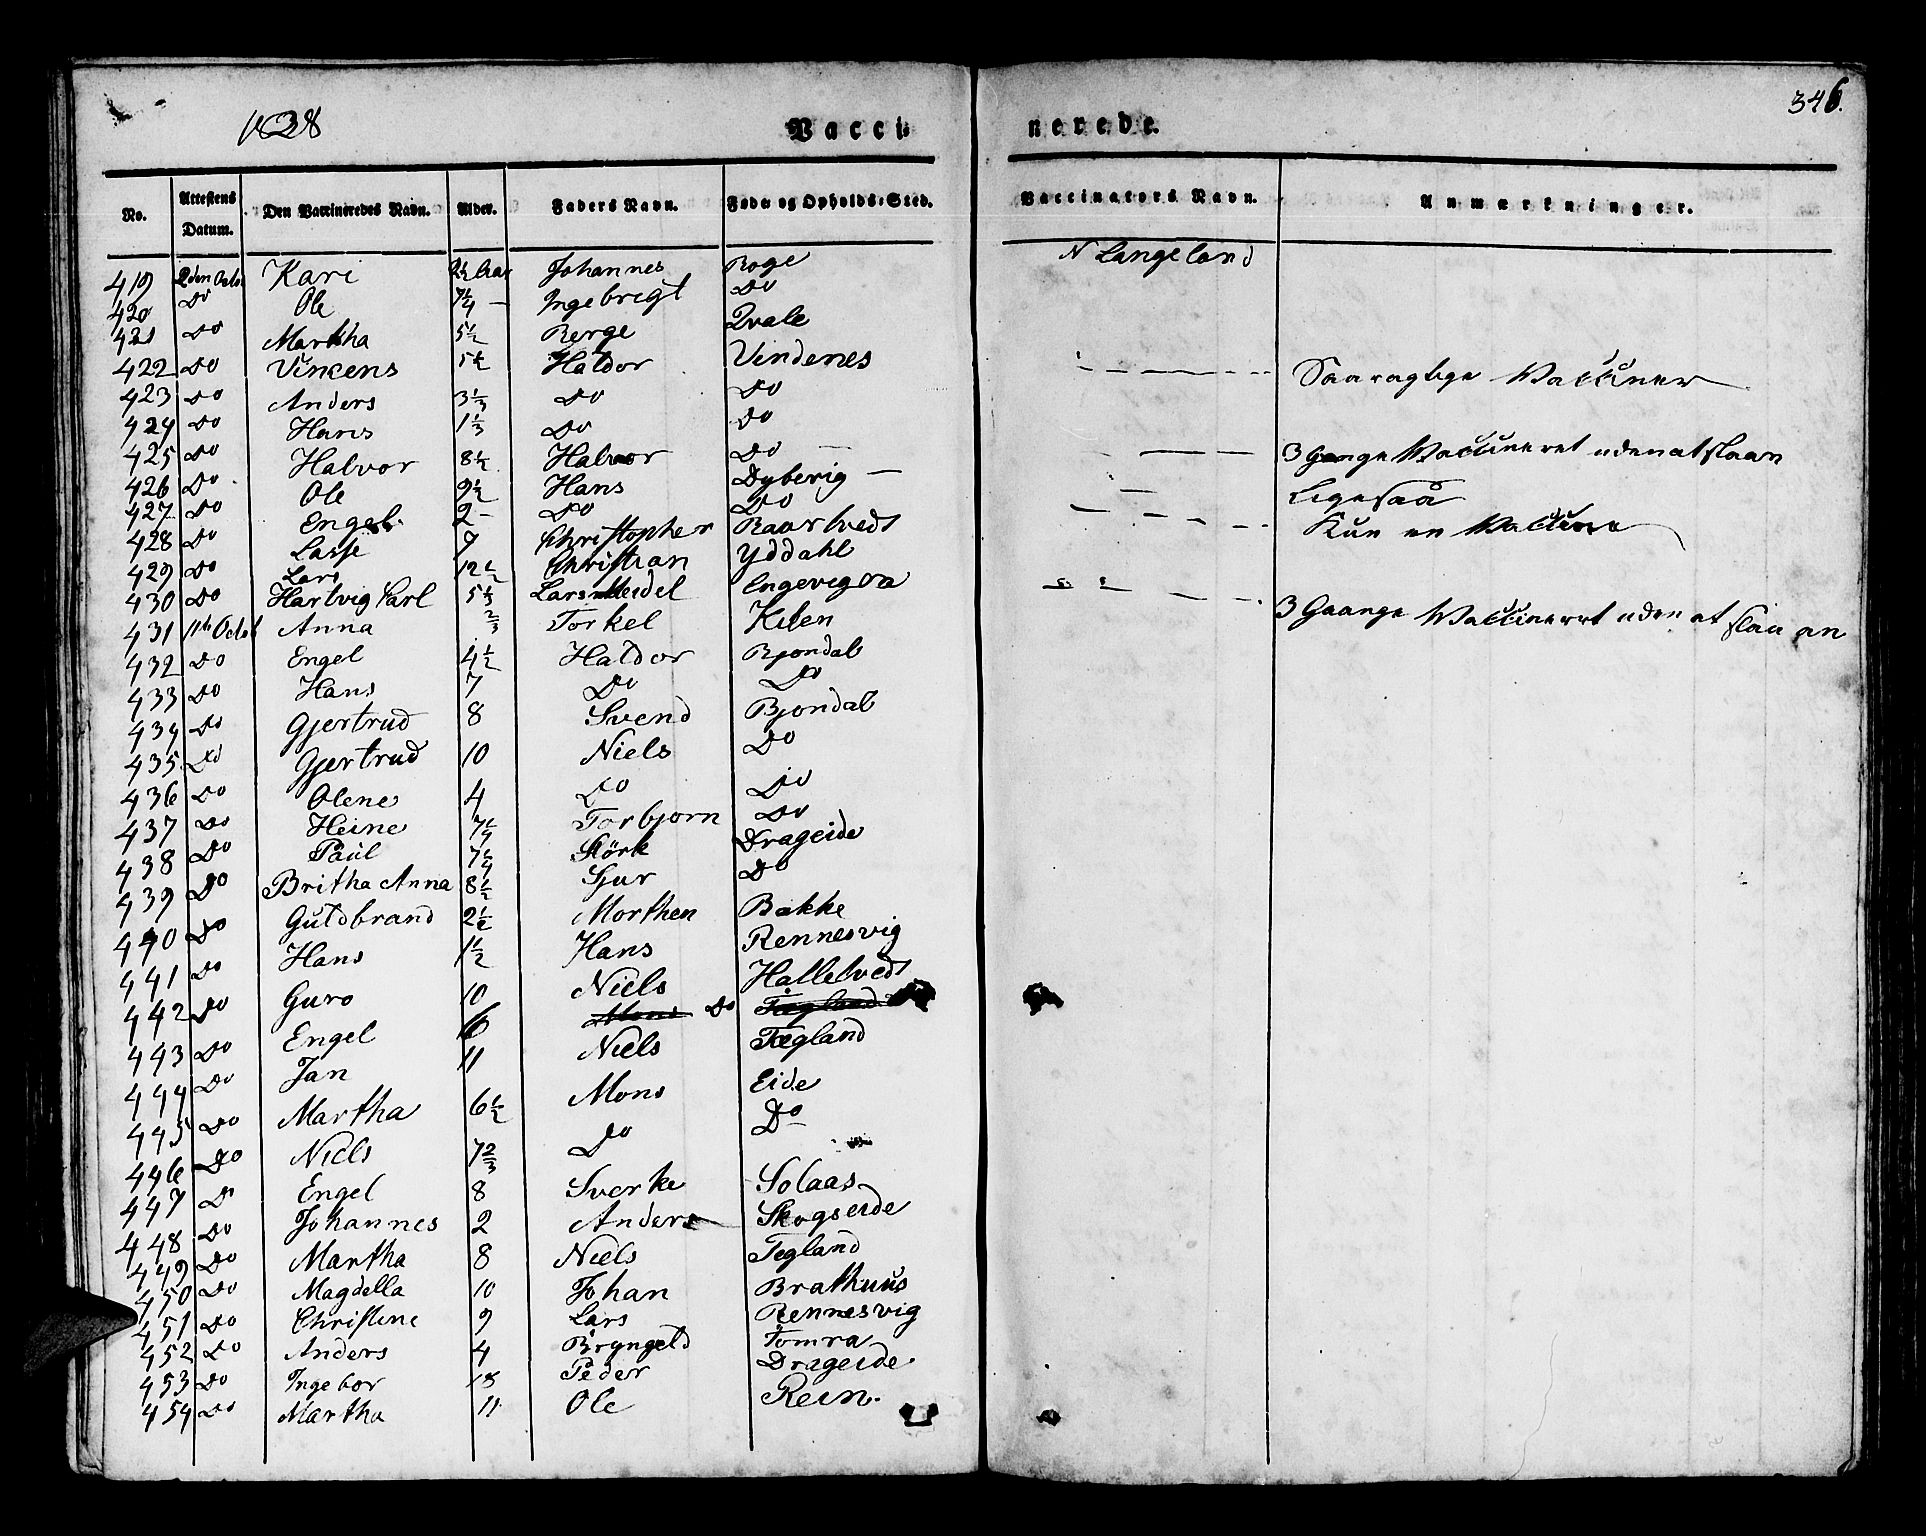 1828 Vacci- nerede. 346.
No. Attestens Datum. Den Vaccineredes Navn. Alder. Faders Navn. Føde og Opholds-Sted. Vaccinators Navn. Anmærkninger.
419 2den Octo Kari 2½ Aar Johannes Roge N Langeland
420 Do Ole 7¼ — Ingebrigt Do
421 Do Martha 5½ Berge Qvale
422 Do Vincens 5½ Haldor Vindenes — — — — Saavagtige Vacciner
423 Do Anders 3⅓ Do Do
424 Do Hans 1⅓ Do Do
425 Do Halvor 8½ Halvor Do — — — — 3 Gange Vaccineret uden at slaan
426 Do Ole 9½ Hans Dyberig — — Ligesaa
427 Do Engel 2 — Do Do — — — — Kun en Vaccine
428 Do Lasse 7 Christopher Raavtvedt
429 Do Lars 12½ Christian Yddahl
430 Do Hartvig Carl 5⅓ Lars Meidel Engevigen — — — — 3 Gaange Vaccineret uden at slaa an
431 11te Octob Anna ⅔ Torkel Kilen
432 Do Engel 4½ Haldor Bjondal
433 Do Hans 7 Do Do
434 Do Gjertrud 8 Svend Bjondal
435 Do Gjertrud 10 Niels Do
436 Do Olene 4 Do Do
437 Do Heine 7¼ Torbjorn Do
438 Do Paul 7¼ Störk Drageide
439 Do Britha Anna 8½ Sjur Do
440 Do Guldbrand 2½ Morthen Bakke
441 Do Hans 1½ Hans Rennesvig
442 Do Guro 10 Niels Halletvedt
443 Do Engel 6 Mons Do Tægland
444 Do Jan 11 Niels Tægland
445 Do Martha 6½ Mons Eide
446 Do Niels 7⅔ Do Do
447 Do Engel 8 Sverke Solaas
448 Do Johannes 2 Anders Skogseide
449 Do Martha 8 Niels Tegland
450 Do Magdella 10 Johan Brathuus
451 Do Christene 9 Lars Rennesvig
452 Do Anders 4 Bryngeld Tomra
453 Do Ingebor Peder Drageide
454 Do Martha 11 Ole Rein.